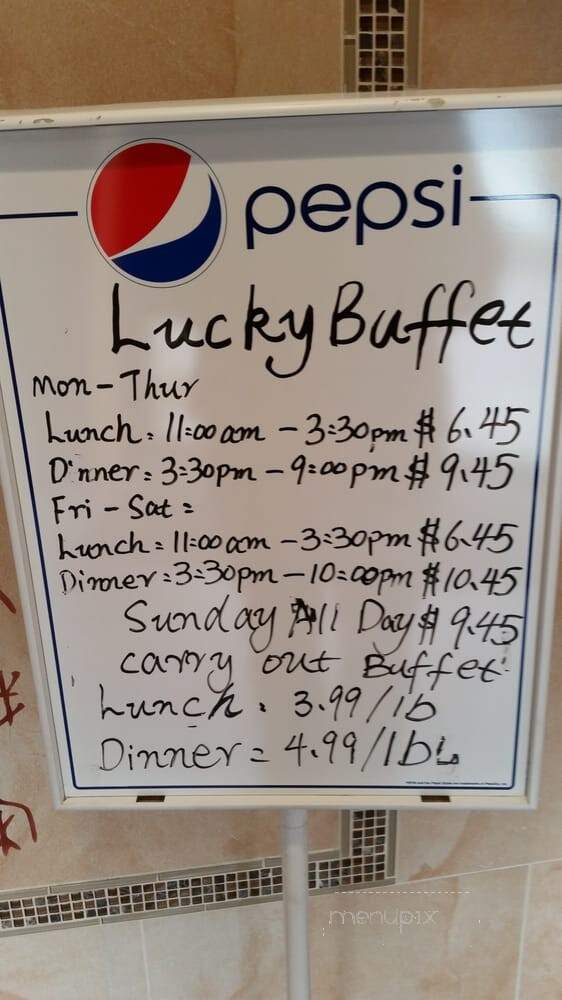 pepsi
Lucky Buffet
Mon-Thur
Lunch: 11:00am - 3:30pm $6.45
Dinner: 3:30pm - 9:00pm $9.45
Fri-Sat:
Lunch: 11:00am - 3:30pm $6.45
Dinner: 3:30pm - 10:00pm $10.45
Sunday All Day $9.45
carry out Buffet:
Lunch: 3.99/lb
Dinner: 4.99/lb
menupix